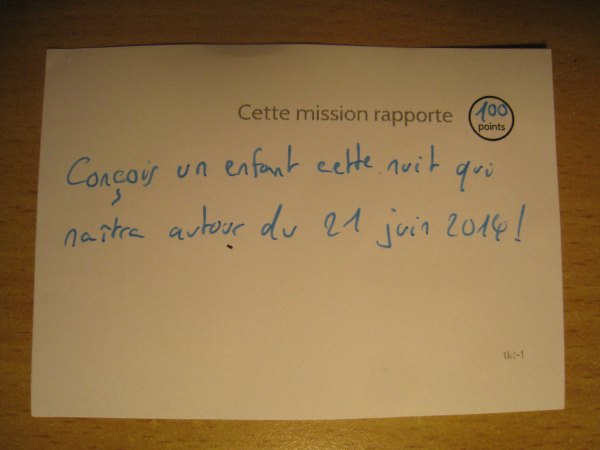 Cette mission rapporte 100 points
Conçois un enfant cette nuit qui
naîtra autour du 21 juin 2014!
tkt-1